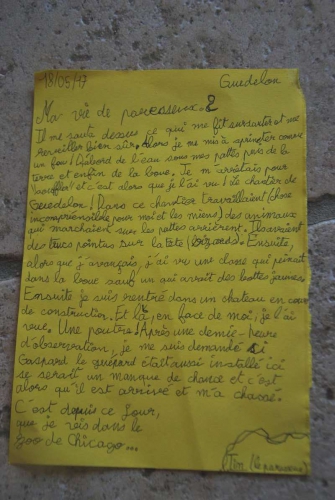 18/05/17
Guedelon
Ma vie de paresseux 2
Il me saute dessus ce qui me fit sursauter et me
reveiller bien sûr. Alors je me mis a sprinter comme
un fou! D'abord de l'eau sous mes pattes puis de la
terre et enfin de la boue. Je m'arretais pour
souffler et c'est alors que je l'ai vu! Le chantier de
Guedelon! Dans ce chantier travaillaient (chose
incompréhensible pour moi et les miens) des animaux
qui marchaient sur les pattes arrièrent. Ils avaient
des trucs pointus sur la tête (bizarre). Ensuite,
alors que j'avançais, j'ai vu une classe qui peinait
dans la boue sauf un qui avait des bottes jaunes.
Ensuite je suis rentré dans un chateau en cours
de construction. Et là, en face de moi, je l'ai
vue. Une poutre! Après une demie-heure
d'observation, je me suis demandé si
Gaspard le guépard était aussi installé ici
se serait un manque de chance et c'est
alors qu'il est arrivé et m'a chassé.
C'est depuis ce jour,
que je vis dans le
zoo de Chicago...
(le paresseux)